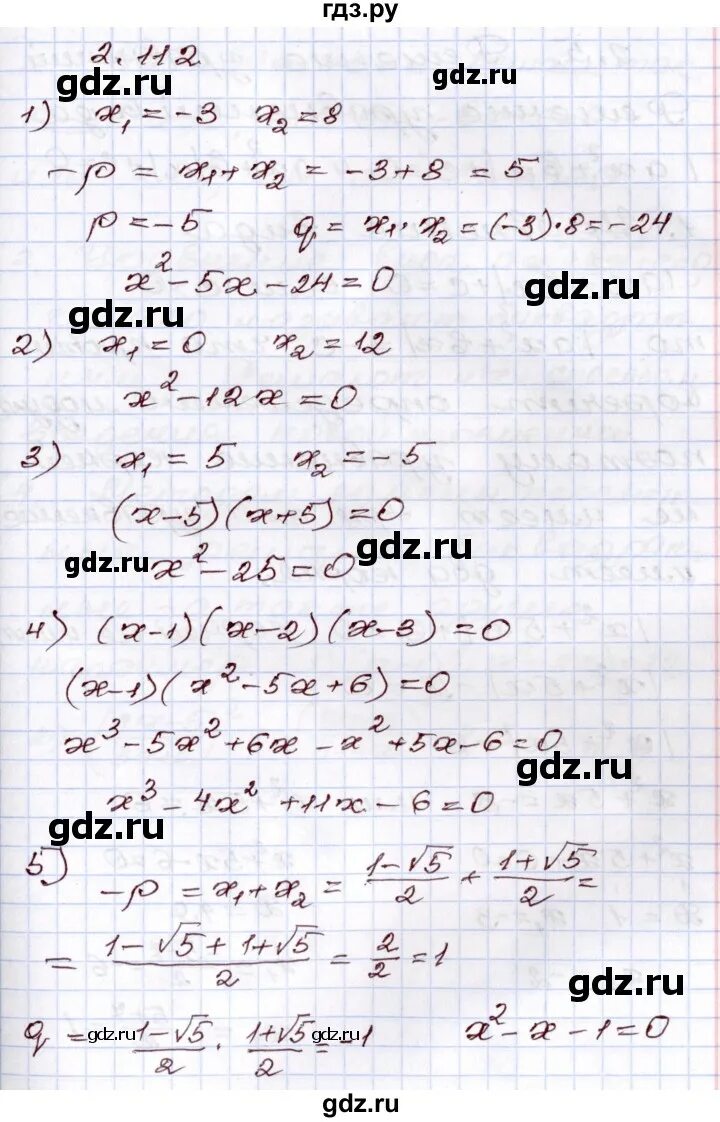 гдз.ру
2.112
gdz.ru gdz.ru
1) x₁ = -3 x₂ = 8
-p = x₁ + x₂ = -3 + 8 = 5
p = -5 q = x₁ · x₂ = (-3) · 8 = -24
x² - 5x - 24 = 0
gdz.ru
gdz.ru
2) x₁ = 0 x₂ = 12
x² - 12x = 0
3) x₁ = 5 x₂ = -5
(x-5)(x+5) = 0
gdz.ru
gdz.ru x² - 25 = 0
4) (x-1)(x-2)(x-3) = 0
(x-1)(x² - 5x + 6) = 0
x³ - 5x² + 6x - x² + 5x - 6 = 0
gdz.ru
x³ - 4x² + 11x - 6 = 0
gdz.ru
5) -p = x₁ + x₂ = (1-√5)/2 + (1+√5)/2 =
= (1-√5+1+√5)/2 = 2/2 = 1
gdz.ru
q = (1-√5)/2 · (1+√5)/2 = -1 x² - x - 1 = 0
gdz.ru gdz.ru
gdz.ru